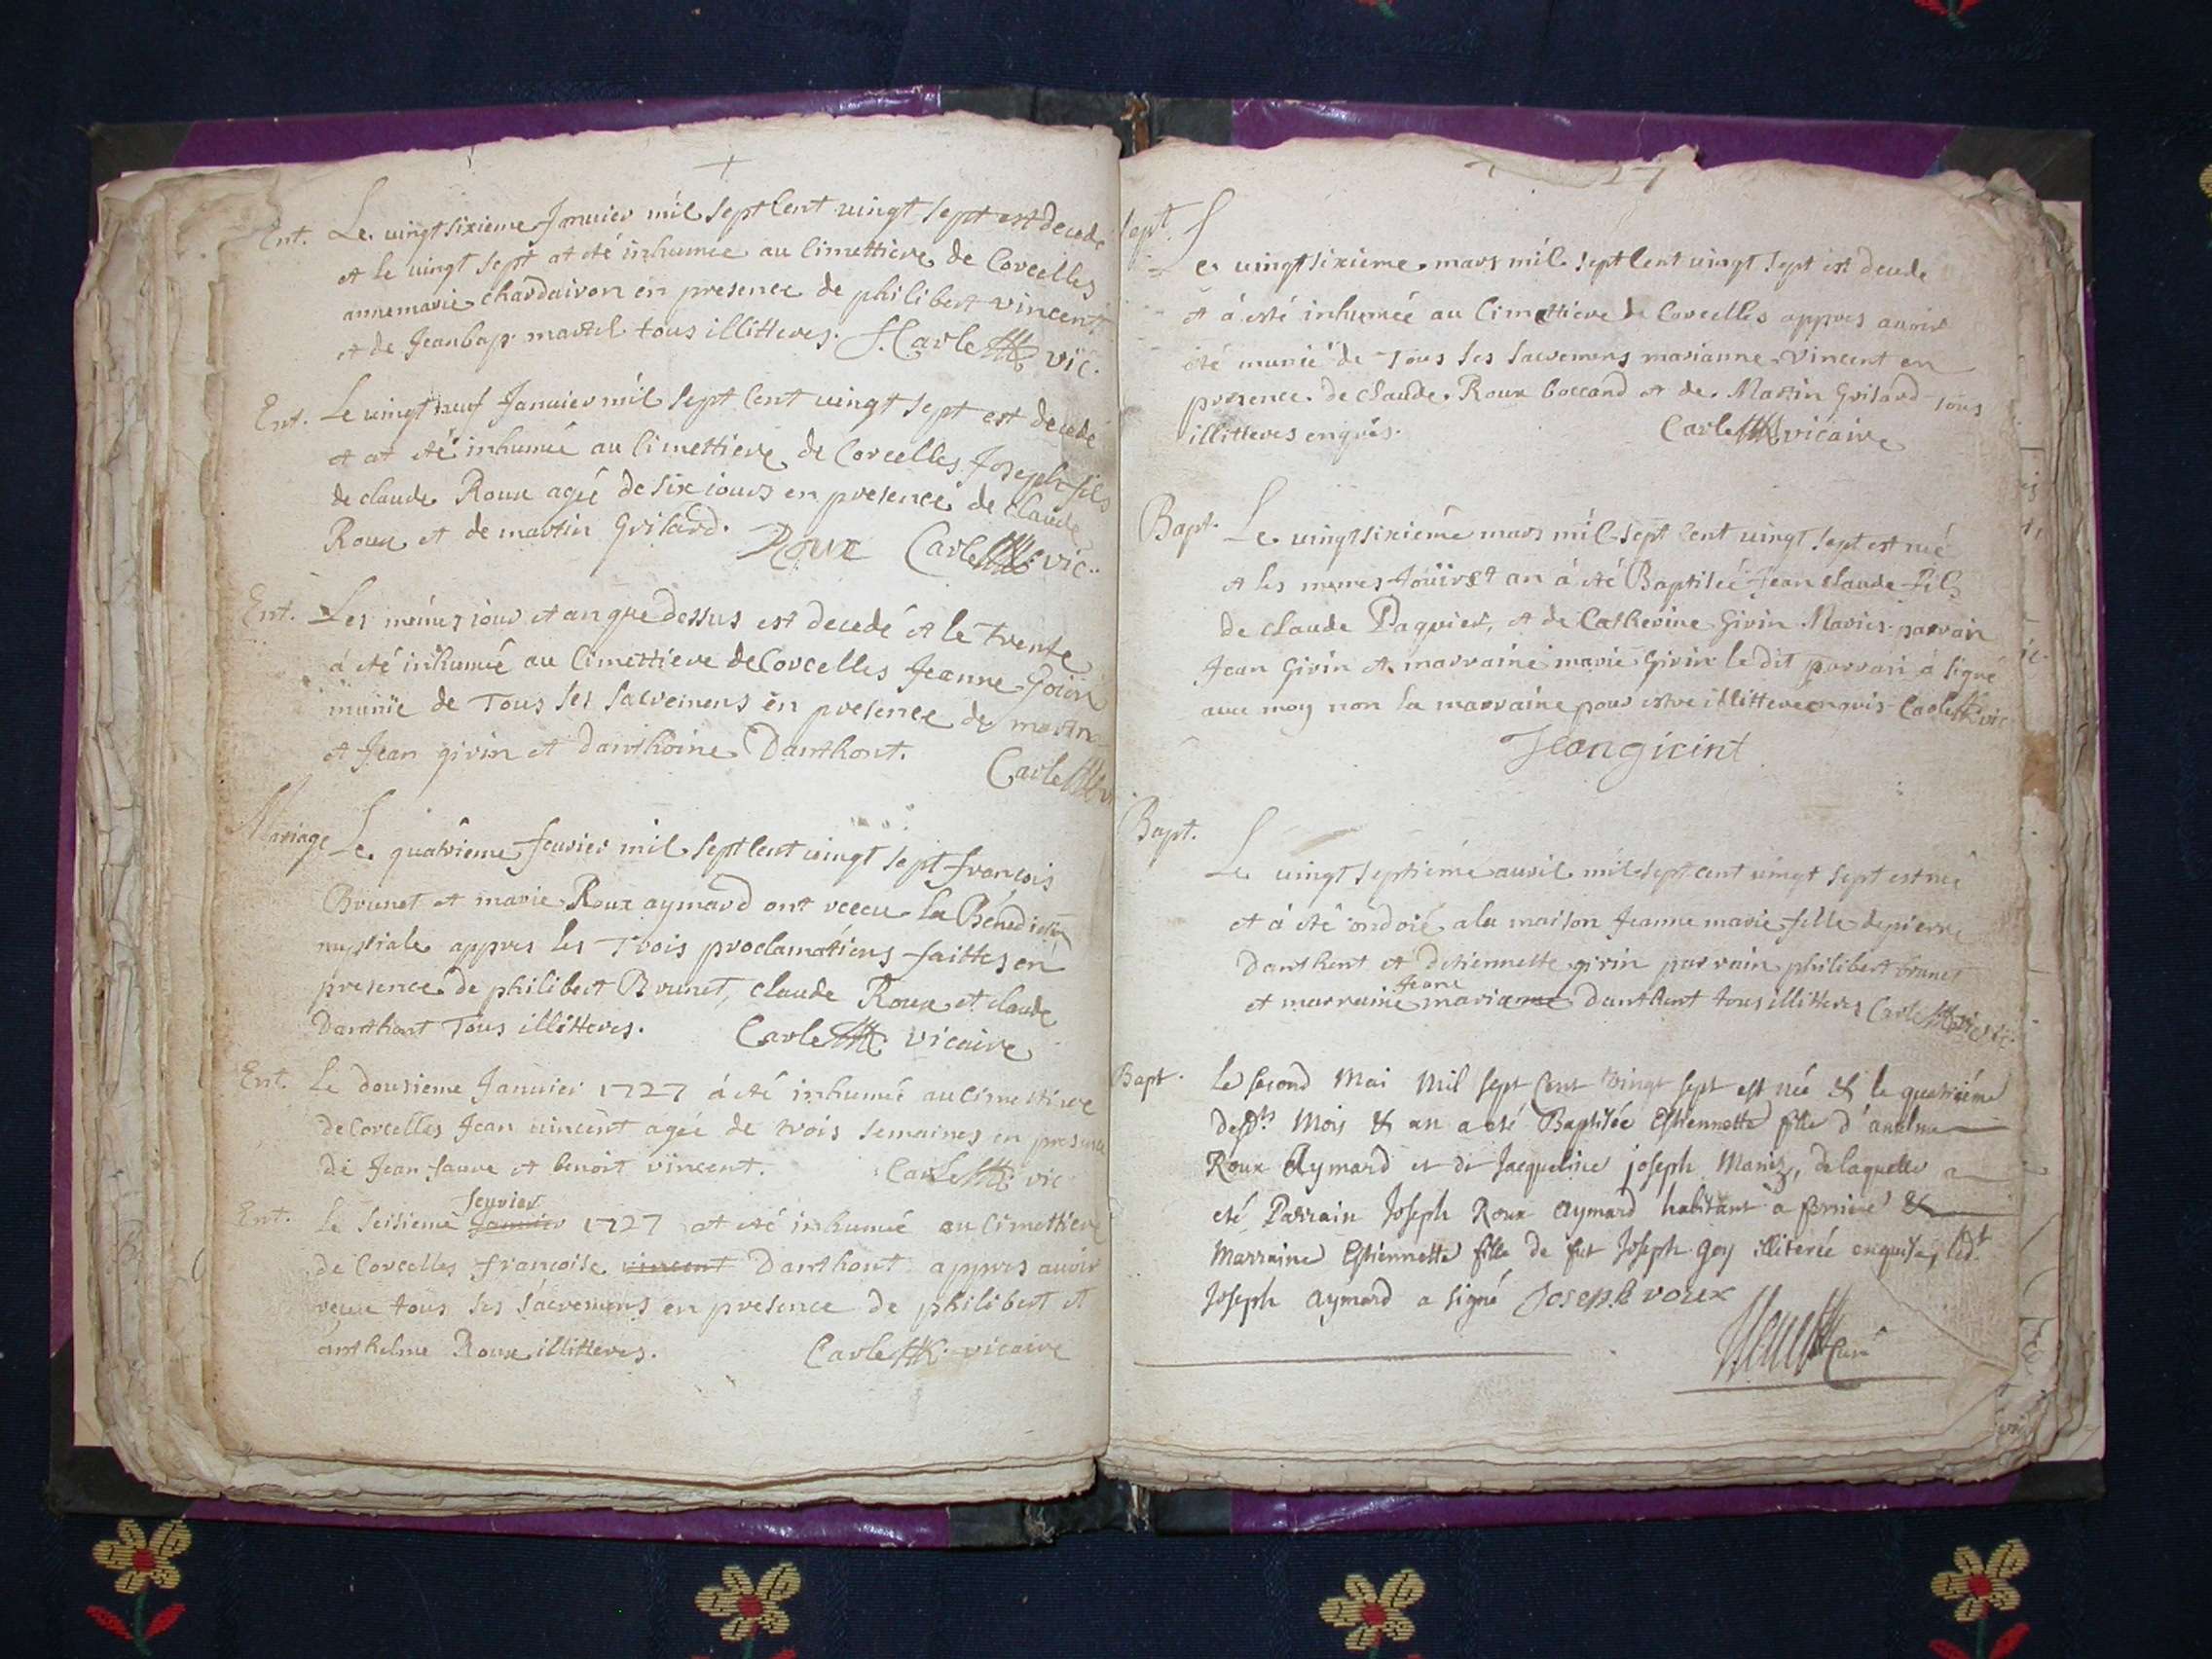 Ent. Le vingtsixieme Janvier mil sept Cent vingt sept est decedé
et le vingt sept at eté inhumée au Cimettiere de Corcelles
annemarie chardairon en presence de philibert vincent
et de Jeanbap. martel tous illitteres. Carle vic.
Ent. Le vingt neuf Janvier mil sept Cent vingt sept est decedé
et at eté inhumé au Cimettiere de Corcelles Joseph fils
de claude Roux agée de six jours en presence de claude
Roux et de martin Grilard. Roux Carle vic.
Ent. Les mémes jour et an que dessus est decedé et le Trente
á eté inhumée au Cimettiere de Corcelles Jeanne
munie de Tous ses sacremens en presence de martin
et Jean givin et Danthoine Danthont.
Carle
Mariage Le quatrieme fevrier mil sept Cent vingt sept françois
Brunet et marie Roux aymard ont receu la Bénédiction
nuptiale appres les Trois proclamations faittes en
presence de philibert Brunet, claude Roux et claude
Danthont Tous illitteres. Carle vicaire
Ent. Le dousieme Janvier 1727 á eté inhumé au Cimettiere
de Corcelles Jean vincent agée de trois semaines en presence
de Jean faure et benoit vincent. Carle vic
fevrier
Ent. Le seisieme Janvier 1727 at eté inhumée au Cimettiere
de Corcelles françoise vincent Danthont appres avoir
receu tous ses sacremens en presence de philibert et
anthelme Roux illitteres. Carle vicaire
1727
sept. Le vingtsixieme mars mil sept Cent vingt sept est decede
et á esté inhumée au Cimettiere de Corcelles appres avoir
été munie de Tous ses sacremens marianne vincent en
presence de claude Roux boccand et de Martin Grilard tous
illitteres enquis. Carle vicaire
Bapt. Le vingtsixiéme mars mil sept Cent vingt sept est né
et les memes Jour et an á eté Baptisé Jean claude fils
de claude Paquier, et de Catherine Givin Mariés parrain
Jean Givin et marraine marie Givin le dit parrain á signé
avec moy non la marraine pour estre illittere enquis Carle vic
Jean givint
Bapt. Le vingt septiéme avril mil sept cent vingt sept est née
et á eté ondoié a la maison Jeanne marie fille de pierre
Danthont et d'etiennette givin parrain philibert brunet
Jeane
et marraine marianne Danthont tous illitteres Carle vic
Bapt. Le second Mai Mil sept Cent vingt sept est née & le quatriéme
desdts Mois & an a eté Baptisée Estiennette fille d'anthelme
Roux Aymard et de Jacqueline joseph Maniz, de laquelle a
eté Parrain Joseph Roux Aymard habitant à &
Marraine Estiennette fille de fut Joseph Goy illiterée enquise, ledt
Joseph Aymard a signé Joseph roux
Curé